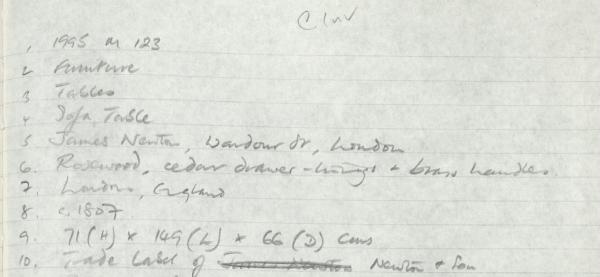 C Inv
1, 1995 M 123
2 Furniture
3 Tables
4 Sofa, Table
5 James Newton, Wardour St, London
6. Rosewood, cedar drawer-linings + brass handles.
7. London, England
8. c. 1807
9. 71 (H) x 149 (L) x 66 (D) cms
10. Trade Label of James Newton Newton + Son